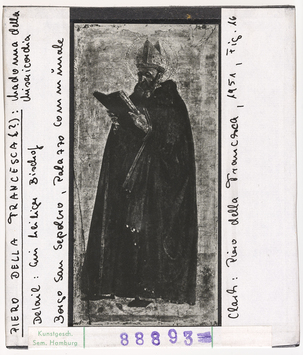 PIERO DELLA FRANCESCA (?): Madonna della
Misericordia
Detail: Ein heiliger Bischof
Borgo San Sepolcro, Palazzo communale
Clark: Piero della Francesca, 1951, Fig. 16
Kunstgesch.
Sem. Hamburg
88893